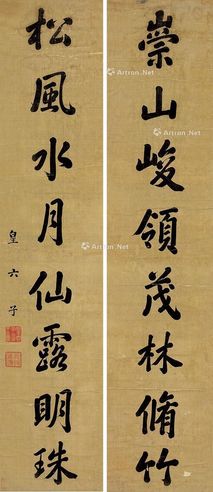 崇山峻領茂林脩竹
松風水月仙露明珠
皇六子
Artron.Net
Artron.Net
Artron.Net
Artron.Net
Artron.Net